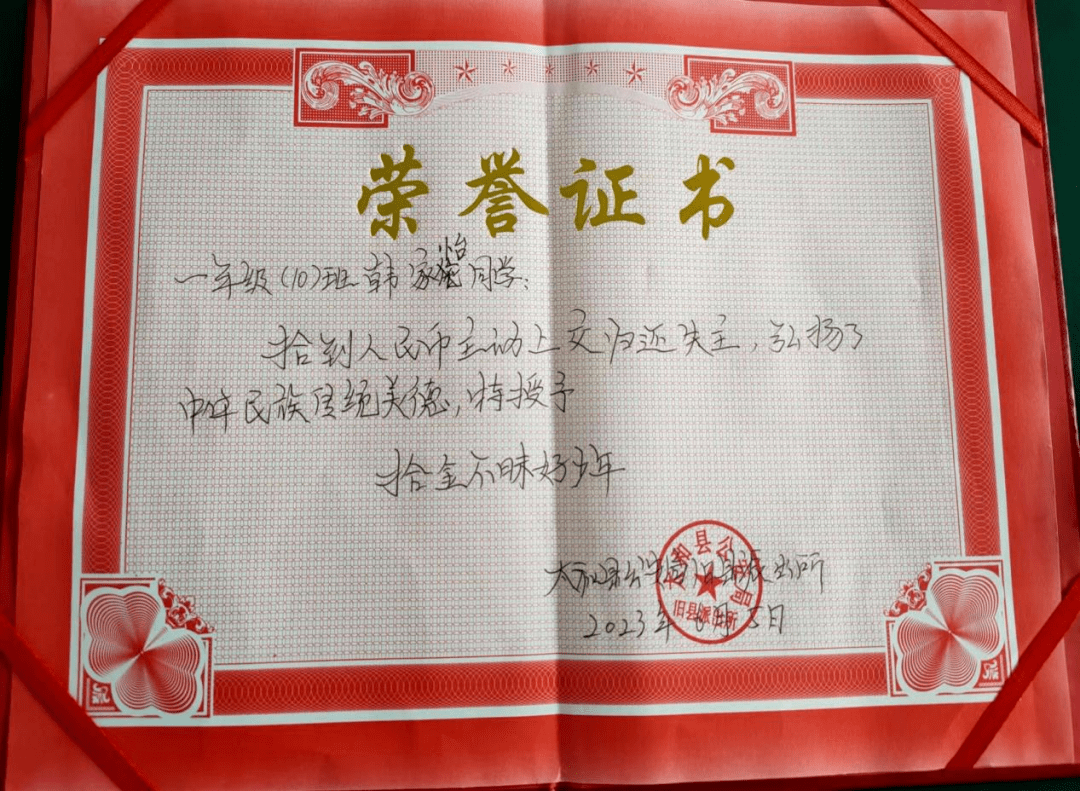 荣誉证书
一年级(10)班韩家怡同学:
拾到人民币主动上交归还失主,弘扬了
中华民族传统美德,特授予
拾金不昧好少年
太和县公安局旧县派出所
2023年 月5日
太和县公安局
旧县派出所